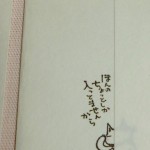 ほんの
ちょこっとしか
入ってませんが
から